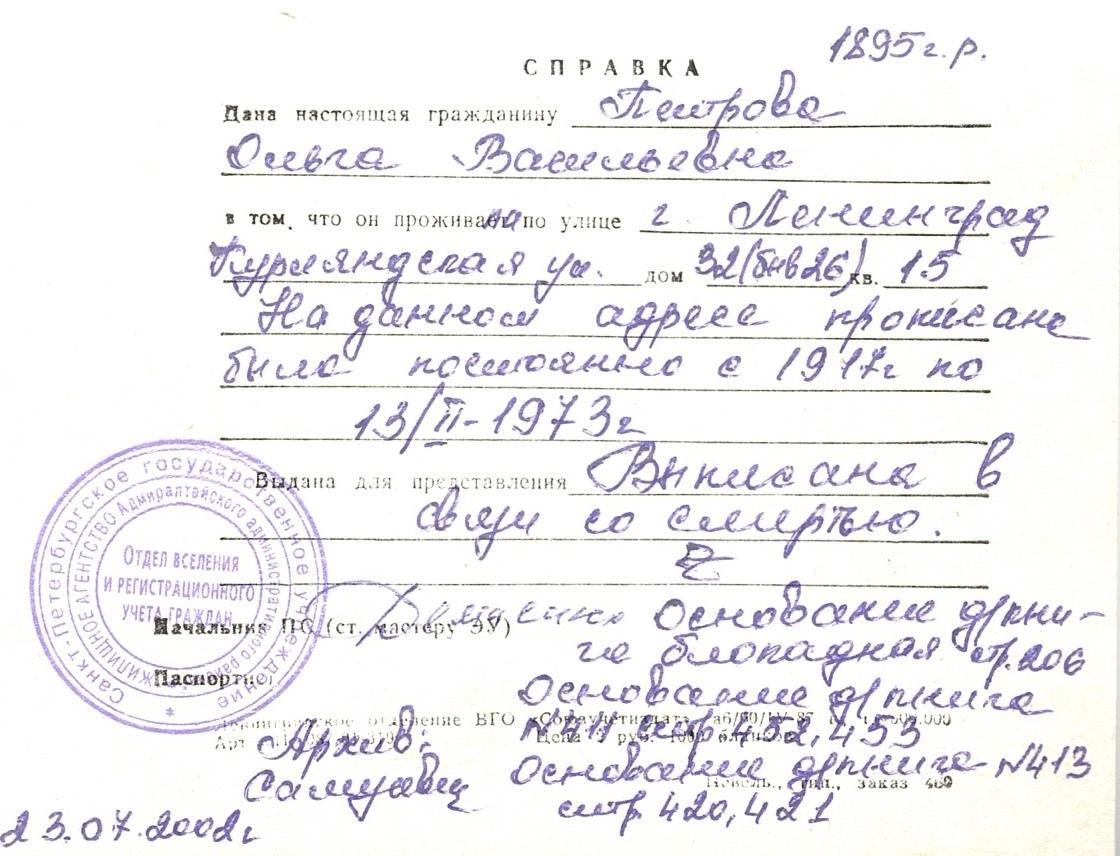 1895 г.р.
СПРАВКА
Дана настоящая гражданину Петрова
Ольга Васильевна
в том, что он проживает по улице г Ленинград
Курляндская ул. дом 32 (бив 26) кв. 15
На данном адресе прописана
была постоянно с 1917г по
13/II-1973г
Выдана для представления Выписана в
связи со смертью.
Начальник ПС (ст. мастеру ЭУ) Основание д/кни-
га блокадная стр. 206
Паспортн
Основание д/книга
отделение ВГО «Союзучетиздат»
стр 452, 453
Архив:
Основание д/книга N413
Самуавц
Невель, тип., заказ 460
стр. 420, 421
23.07.2002г
Санкт-Петербургское государственное учреждение
ЖИЛИЩНОЕ АГЕНТСТВО Адмиралтейского административного района
ОТДЕЛ ВСЕЛЕНИЯ
И РЕГИСТРАЦИОННОГО
УЧЕТА ГРАЖДАН